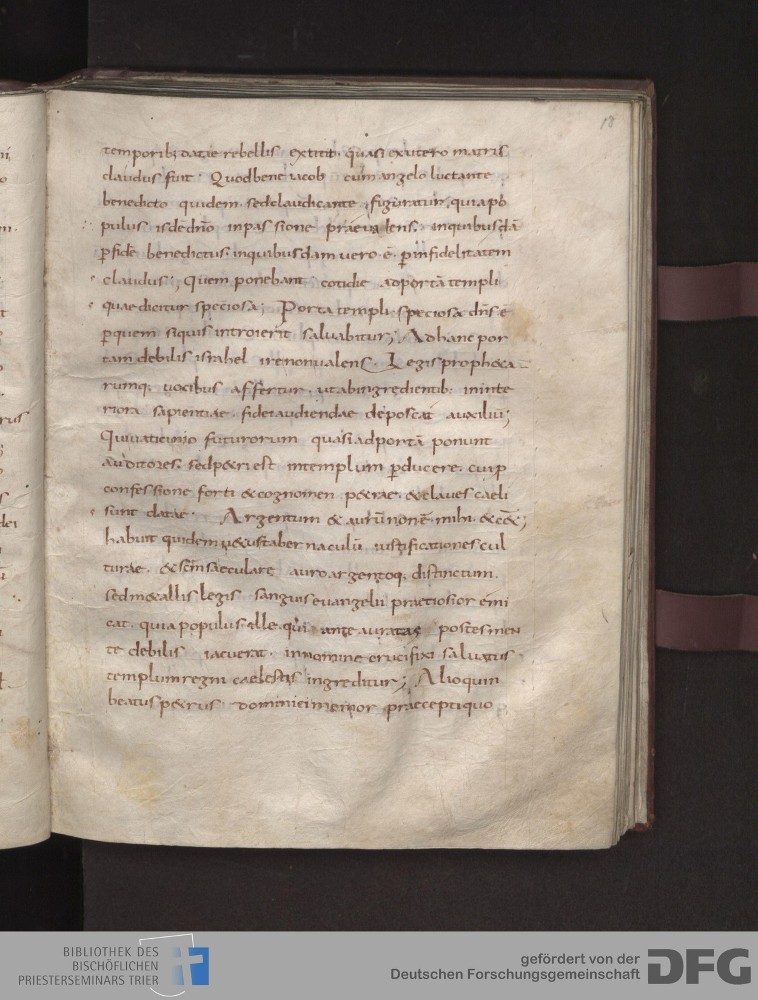 18
temporibꝫ datae rebellis extitit· quasi exutero matris
claudus fuit· Quodbene iacob cum angelo luctante
benedicto quidem· sedclaudicante figuratum, quiapo
pulus isdedn̄o inpassione praeualens· inquibusdā
ꝑfidē benedictus· inquibusdam uero·ē· ꝑinfidelitatem
claudus; Quem ponebant cotidie adportā templi
quae dicitur speciosa; Porta templi speciosa dn̄s ē
ꝑquem siquis introierit saluabitur; Adhanc por
tam debilis israhel irenonualens· Legis proph&a
rumq; uocibus affertur· utabingredientib; ininte
riora sapientiae· fidei audiendae deposcat auxiliū;
Quiuaticinio futurorum quasi adportā ponunt
auditores· sedp&ri est intemplum ꝑducere· cuip
confessione forti &cognomen p&rae· &claues caeli
sunt datae· Argentum & aurū nonē mihi· &c̄&;
habuit quidem u&ustabernaculū iustificationes cul
turae· &sc̄m saeculare auroargentoq; distinctum·
sedm&allis legis sanguis euangelii praetiosior emi
cat· quia populus ille qui ante auratas postes men
te debilis iacuerat· innomine crucifixi saluatus
templum regni caelestis ingreditur; Alioquin
beatus p&rus dominici memor praeceptiquo
BIBLIOTHEK DES
BISCHÖFLICHEN
PRIESTERSEMINARS TRIER
gefördert von der
Deutschen Forschungsgemeinschaft
DFG